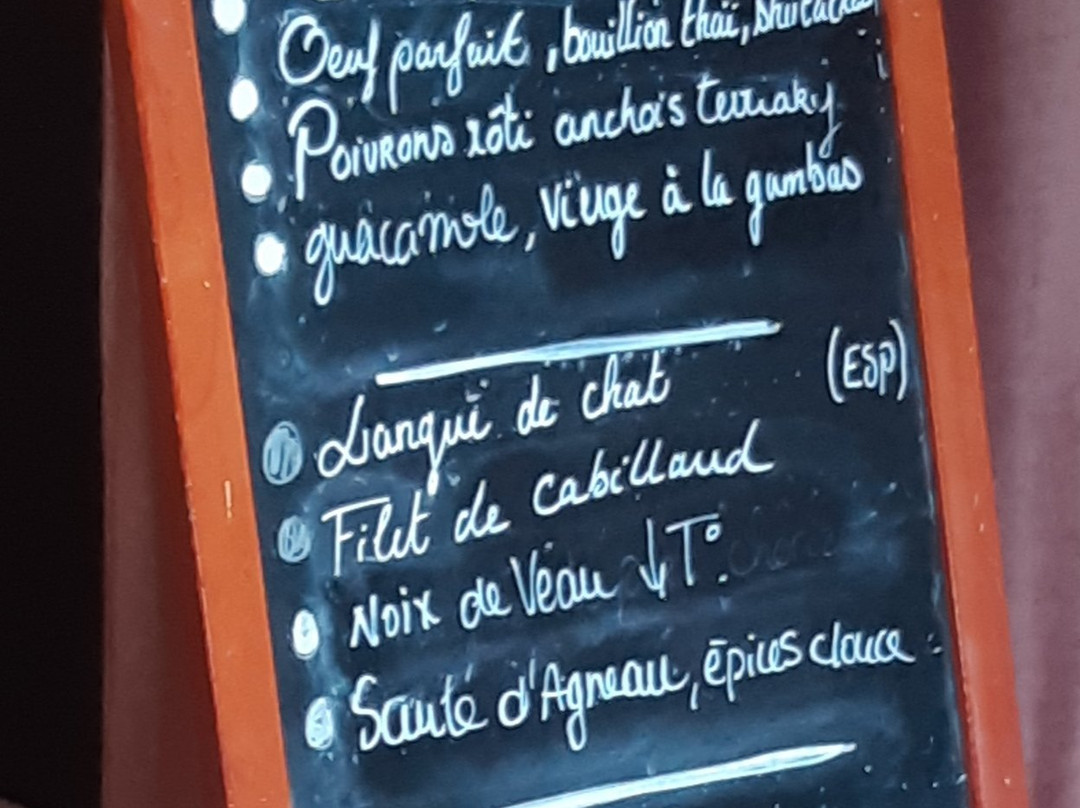 Oeuf parfait, bouillion thaï, shiitakes
Poivrons rôti anchois terriaky
guacamole, vierge à la gambas
Langue de chat (ESP)
Filet de cabillaud
Noix de Veau ↓T°.
Sauté d'Agneau, épices douce :